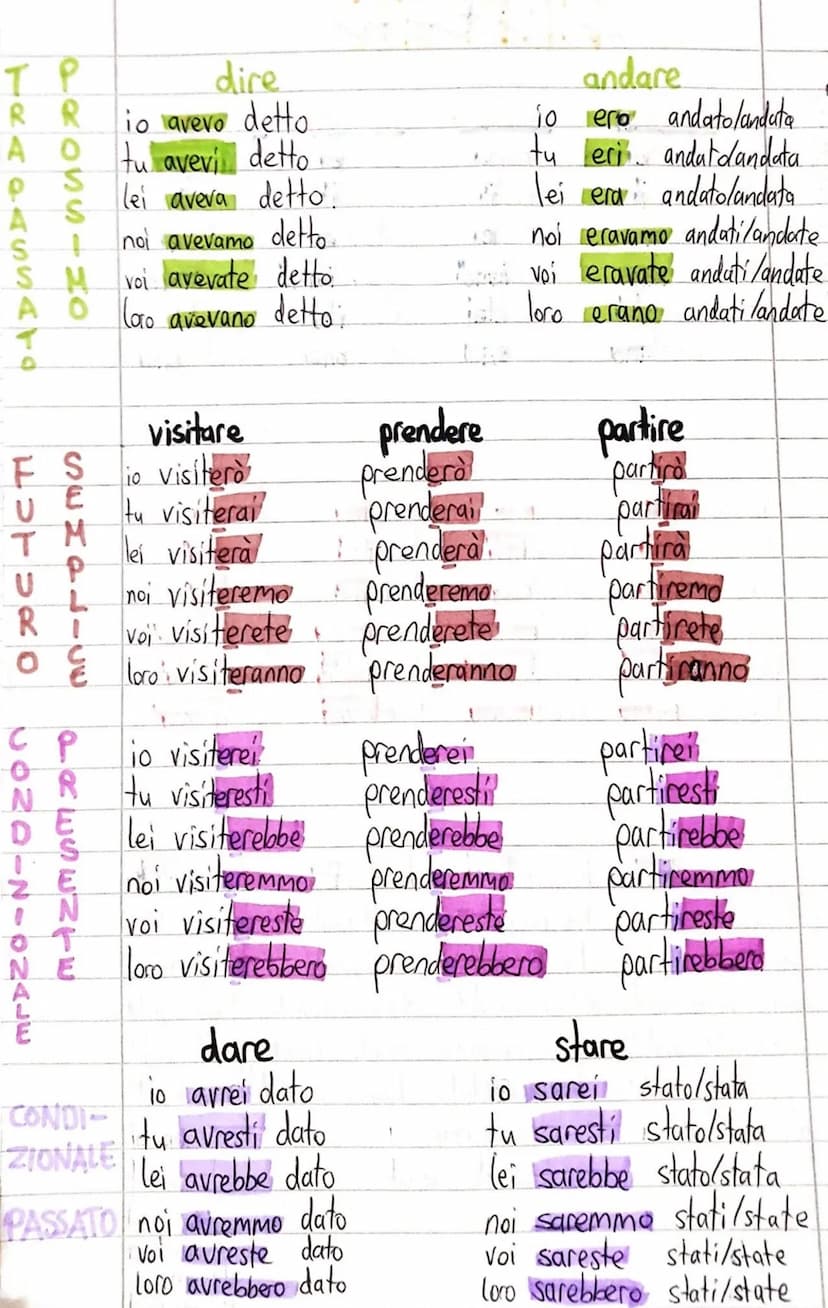 TRAPASSATO PROSSIMO
dire andare
io avevo detto io ero andato/andata
tu avevi detto tu eri andato/andata
lei aveva detto lei era andato/andata
noi avevamo detto noi eravamo andati/andate
voi avevate detto voi eravate andati/andate
loro avevano detto loro erano andati/andate
FUTURO SEMPLICE
visitare prendere partire
io visiterò prenderò partirò
tu visiterai prenderai partirai
lei visiterà prenderà partirà
noi visiteremo prenderemo partiremo
voi visiterete prenderete partirete
loro visiteranno prenderanno partiranno
CONDIZIONALE PRESENTE
io visiterei prenderei partirei
tu visiteresti prenderesti partiresti
lei visiterebbe prenderebbe partirebbe
noi visiteremmo prenderemmo partiremmo
voi visitereste prendereste partireste
loro visiterebbero prenderebbero partirebbero
CONDI-
ZIONALE
PASSATO
dare stare
io avrei dato io sarei stato/stata
tu avresti dato tu saresti stato/stata
lei avrebbe dato lei sarebbe stato/stata
noi avremmo dato noi saremmo stati/state
voi avreste dato voi sareste stati/state
loro avrebbero dato loro sarebbero stati/state